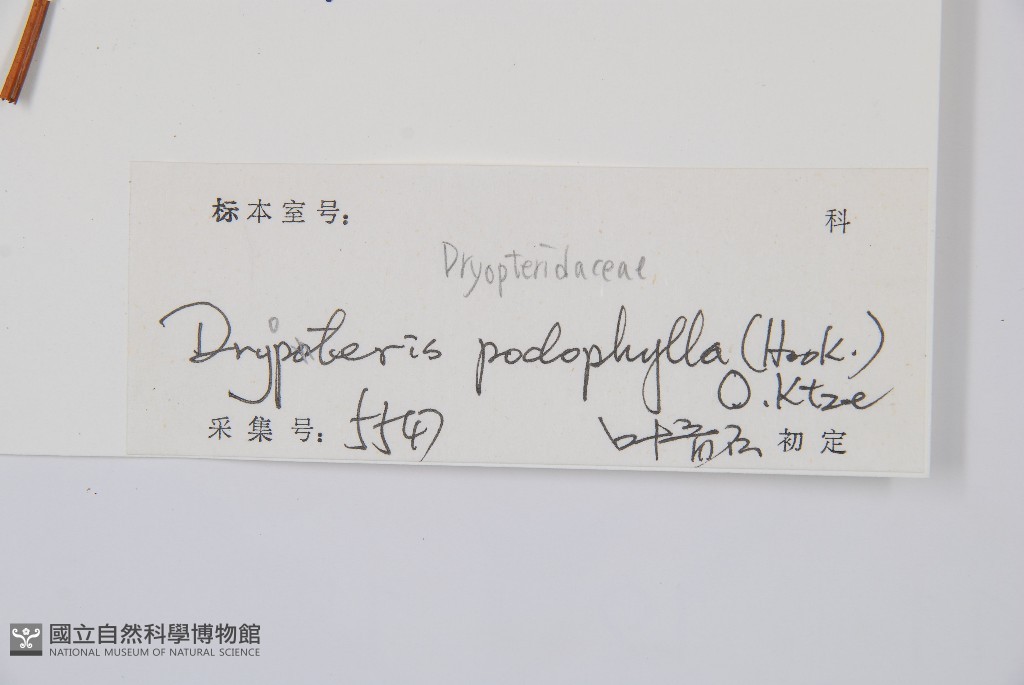 标本室号: 科
Dryopteridaceae
Drypoteris podophylla (Hook.)
O. Ktze
采集号: 5547 叶育石 初定
國立自然科學博物館
NATIONAL MUSEUM OF NATURAL SCIENCE